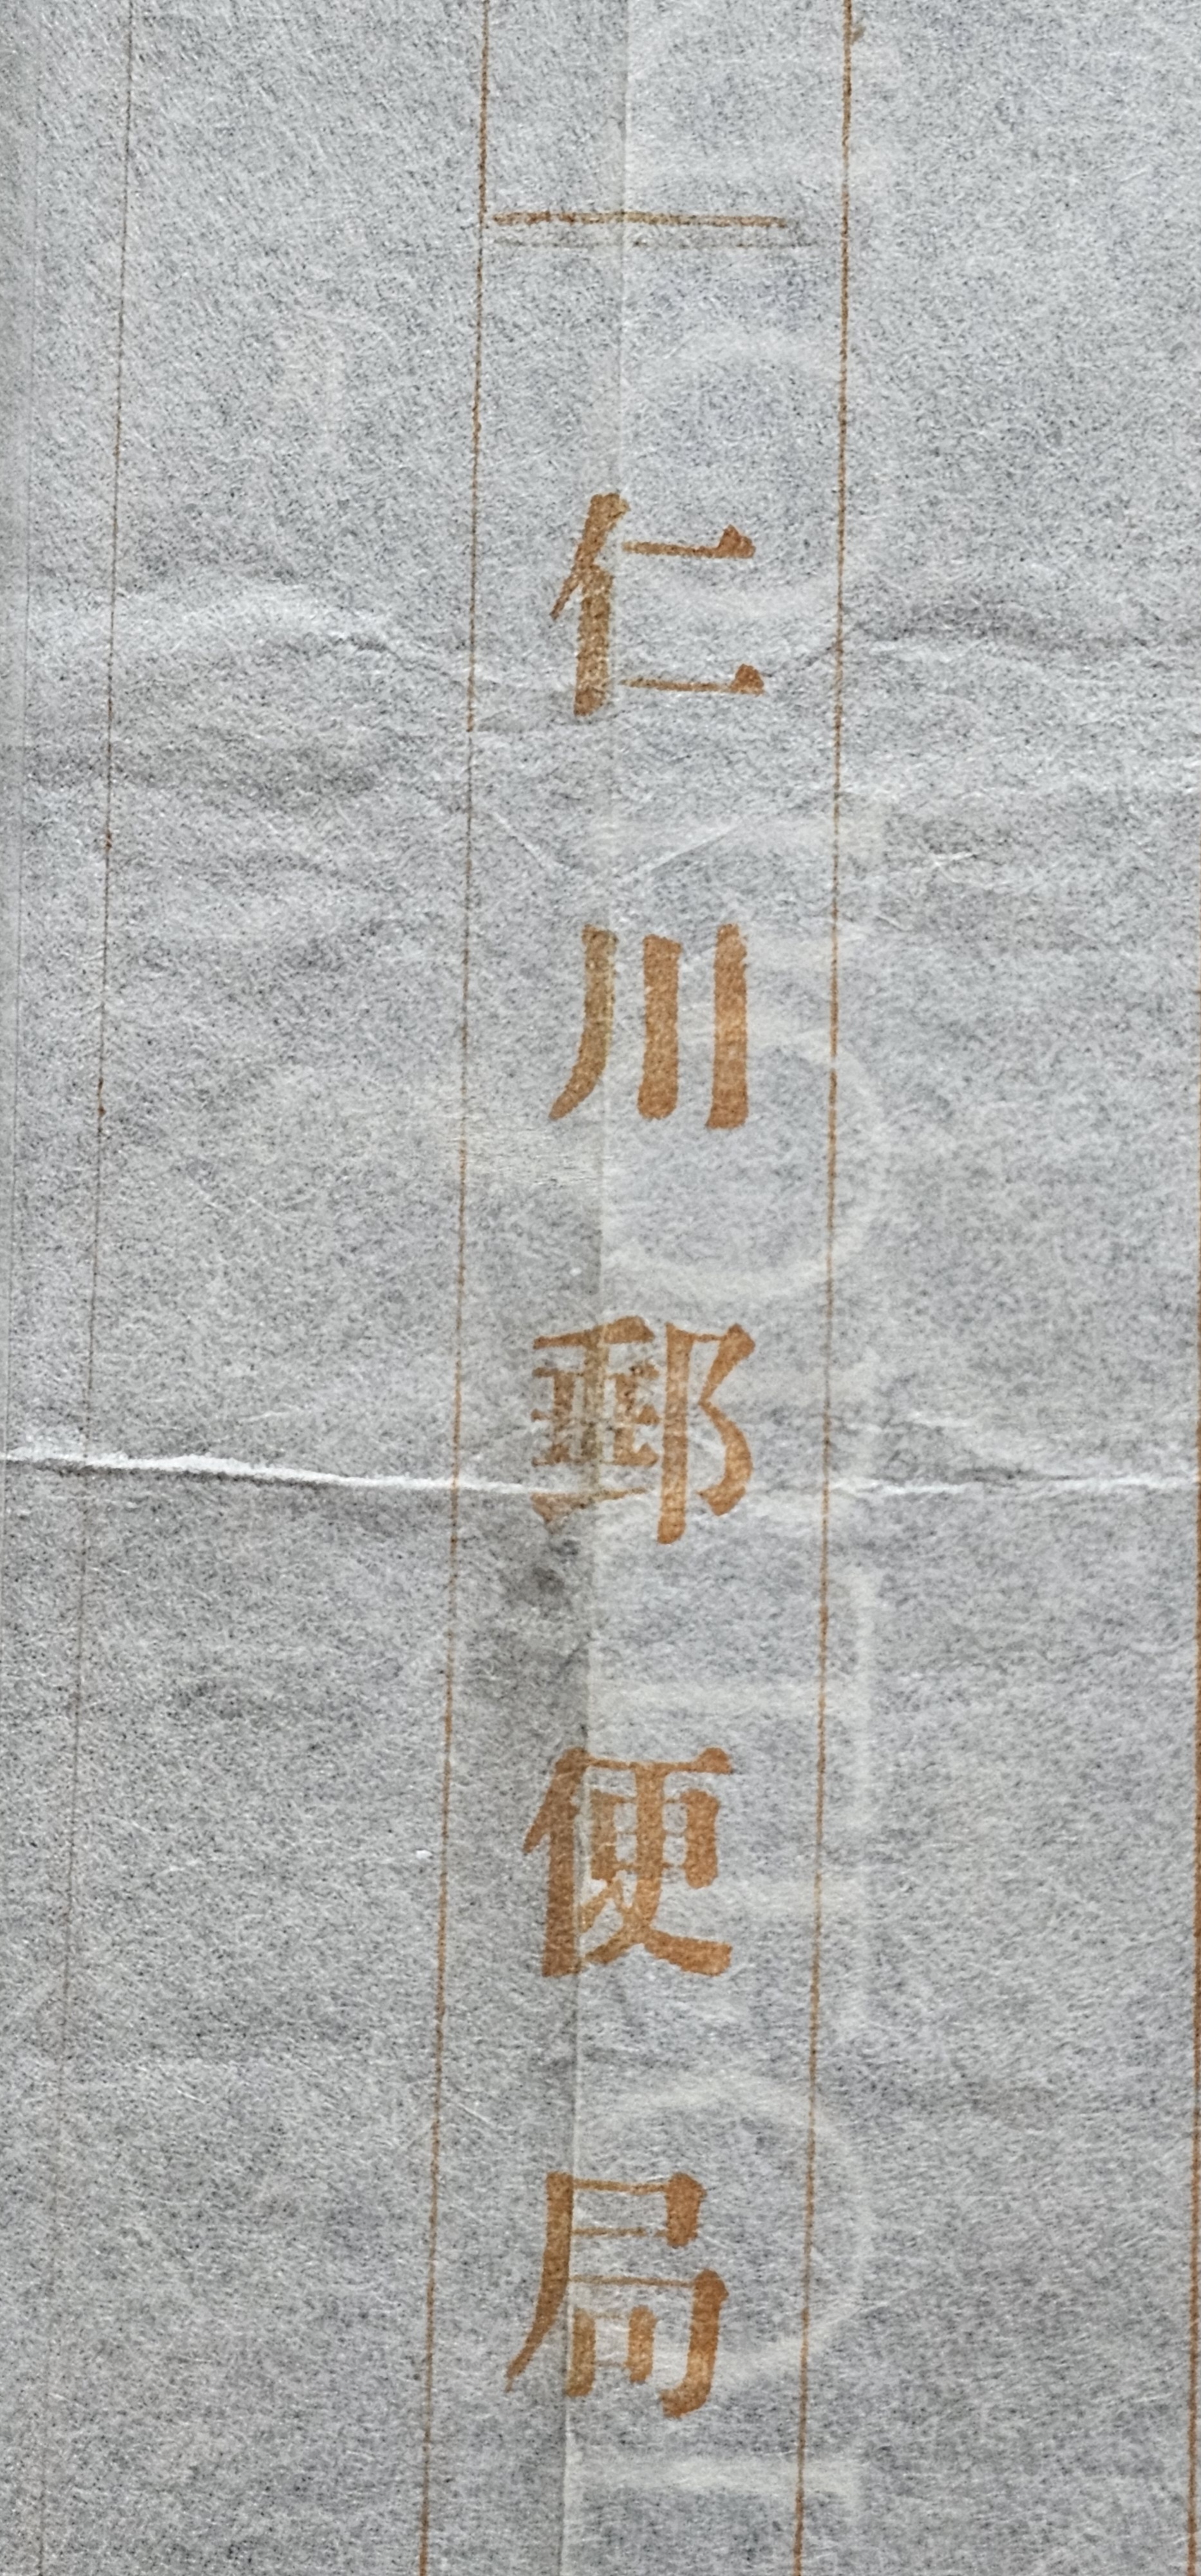 仁川郵便局